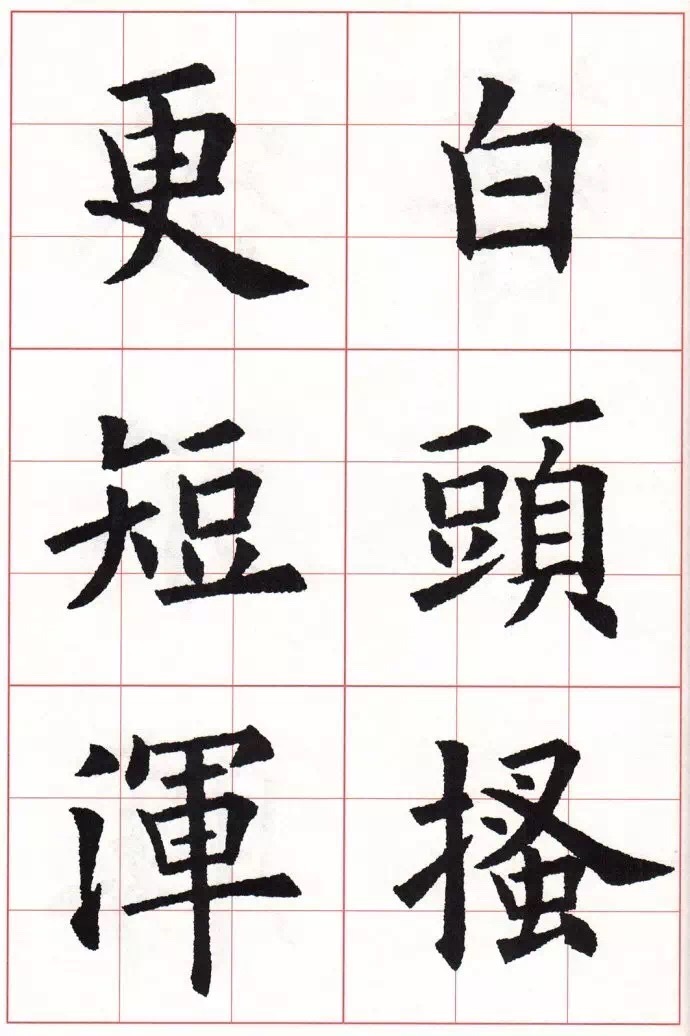 白頭搔
更短渾